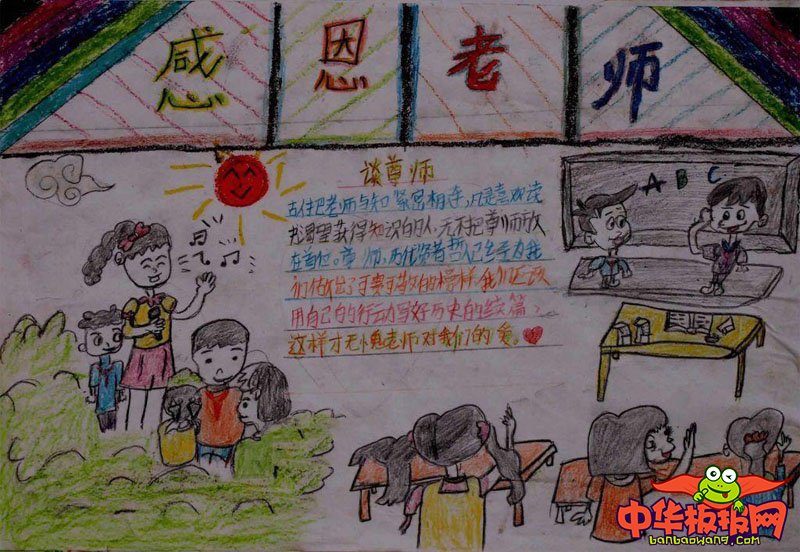 感恩老师
谈尊师
古往把老师与知 紧紧相连,凡是喜欢读
书渴望获得知识的人,无不把尊师放
在首位。尊师,历代贤者哲人已经为我
们做出了可亲可敬的榜样,我们应该
用自己的的行动写好历史的续篇,
这样才无愧老师对我们的爱。
A B C
中华板报网
banbaowang.com